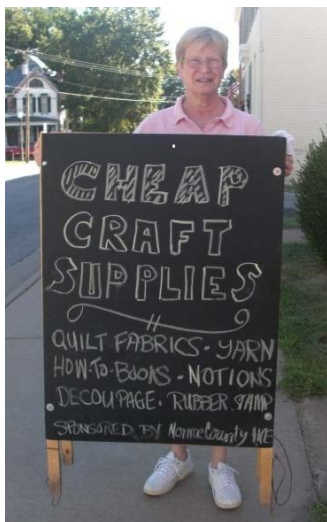 CHEAP
CRAFT
SUPPLIES
QUILT FABRICS · YARN
HOW-TO-BOOKS · NOTIONS
DECOUPAGE · RUBBER STAMP
SPONSORED BY County